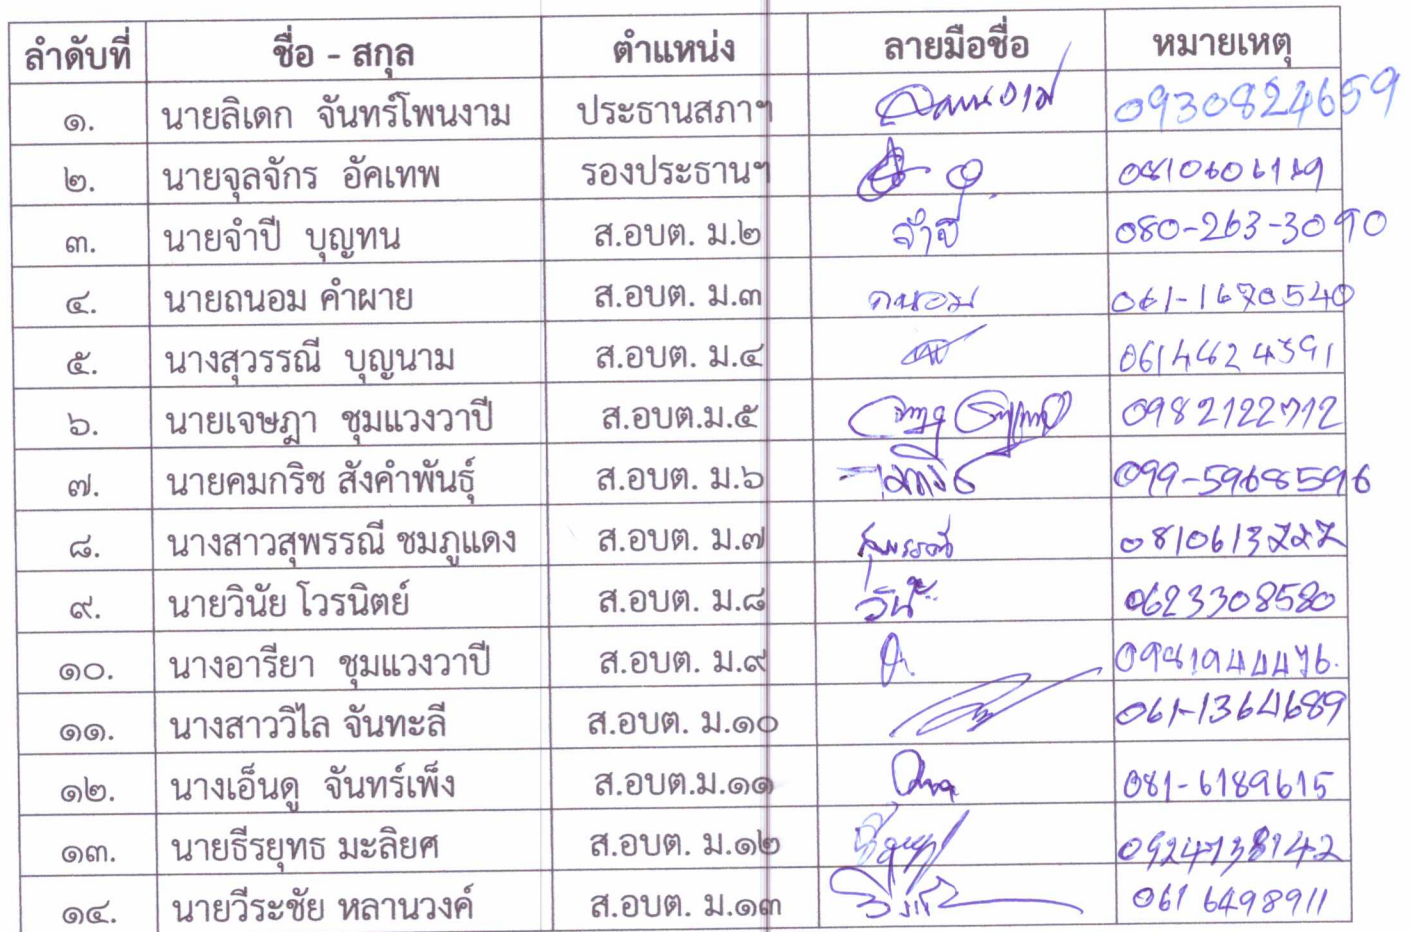 ลำดับที่ ชื่อ - สกุล ตำแหน่ง ลายมือชื่อ หมายเหตุ
๑. นายลิเดก จันทร์โพนงาม ประธานสภาฯ 0930824659
๒. นายจุลจักร อัคเทพ รองประธานฯ
๓. นายจำปี บุญทน ส.อบต. ม.๒ จำปี 080-263-3090
๔. นายถนอม คำผาย ส.อบต. ม.๓ ถนอม 061-1670540
๕. นางสุวรรณี บุญนาม ส.อบต. ม.๔ 0614624391
๖. นายเจษฎา ชุมแวงวาปี ส.อบต.ม.๕ 0982122712
๗. นายคมกริช สังคำพันธุ์ ส.อบต. ม.๖ 099-5968596
๘. นางสาวสุพรรณี ชมภูแดง ส.อบต. ม.๗ สุพรรณี
๙. นายวินัย โวรนิตย์ ส.อบต. ม.๘ วินัย 0623308580
๑๐. นางอารียา ชุมแวงวาปี ส.อบต. ม.๙
๑๑. นางสาววิไล จันทะลี ส.อบต. ม.๑๐ 061-1364689
๑๒. นางเอ็นดู จันทร์เพ็ง ส.อบต.ม.๑๑ 081-6189615
๑๓. นายธีรยุทธ มะลิยศ ส.อบต. ม.๑๒ 0924738142
๑๔. นายวีระชัย หลานวงค์ ส.อบต. ม.๑๓ 061 6498911